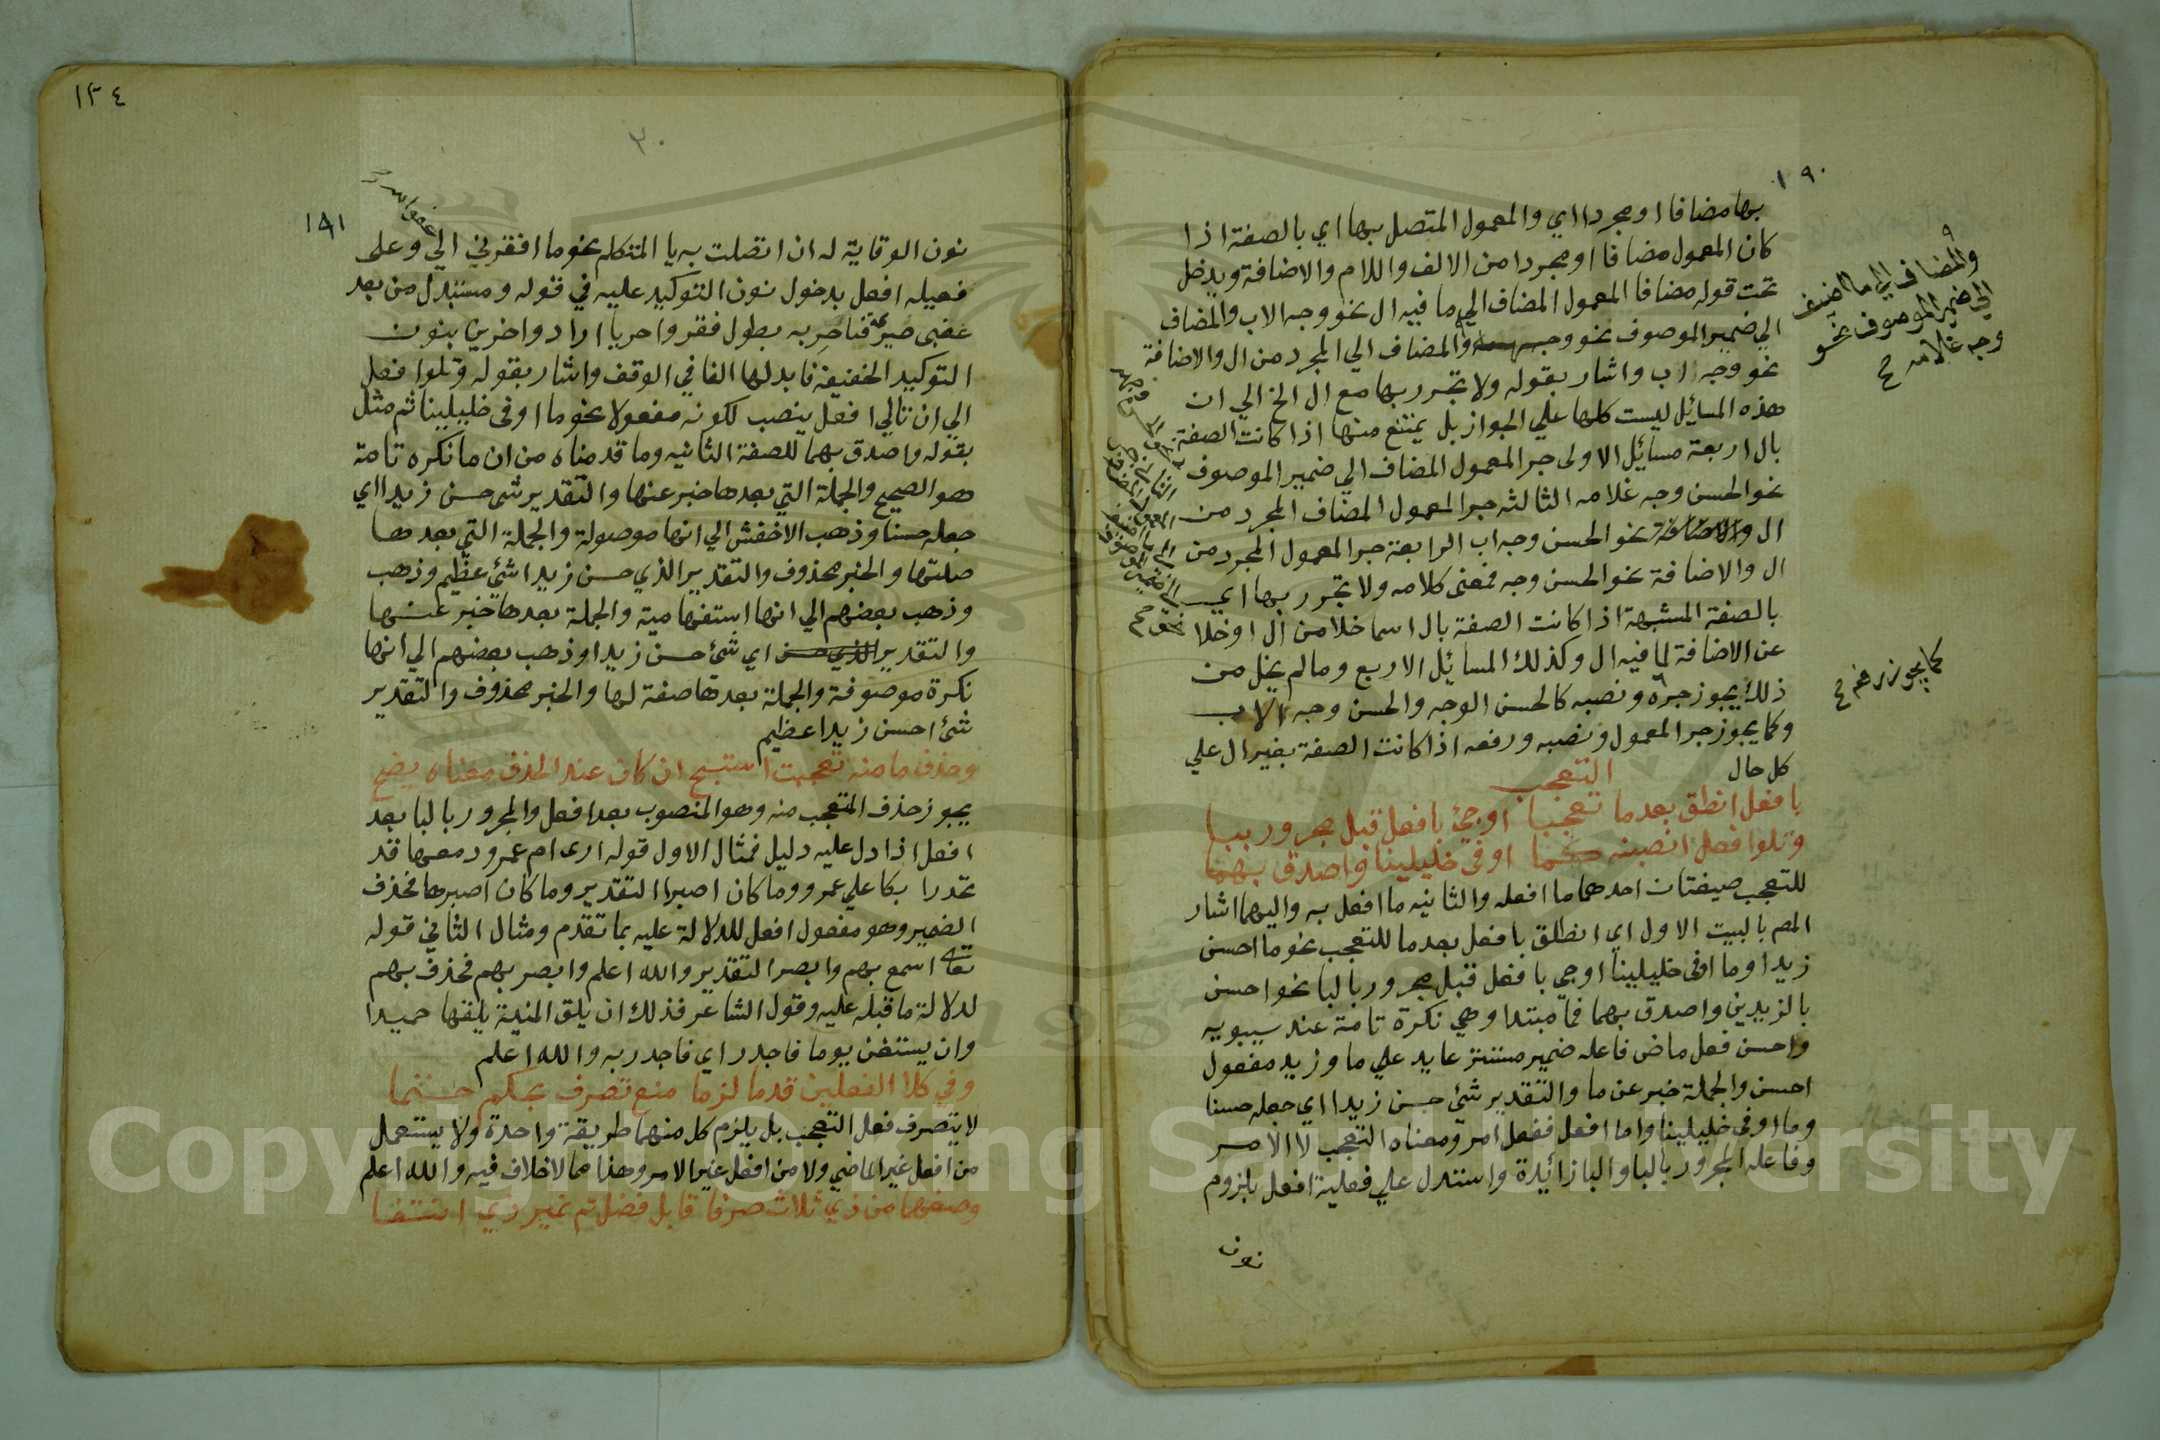 ١٩٠
بها مضافا او مجردا اي والمعمول المتصل بها اي بالصفة اذا
كان المعمول مضافا او مجردا من الالف واللام والاضافة ويدخل
تحت قوله مضافا المعمول المضاف الي ما فيه ال نحو وجه الاب والمضاف
الي ضمير الموصوف نحو وجهه والمضاف الي المجرد من ال والاضافة
نحو وجه اب واشار بقوله ولا تجرر بها مع ال الخ الي ان
هذه المسائل ليست كلها علي الجواز بل يمتنع منها اذا كانت الصفة
بال اربعة مسائل الاولى جر المعمول المضاف الي ضمير الموصوف
نحو الحسن وجه غلامه الثالثه جر المعمول المضاف المجرد من
ال والاضافة نحو الحسن وجه اب الرابعة جر المعمول المجرد من
ال والاضافة نحو الحسن وجه فمعنى كلامه ولا تجرر بها اي
بالصفة المشبهة اذا كانت الصفة بال اسما خلا من ال او خلا
عن الاضافة لما فيه ال وكذلك المسائل الاربع وما لم يخل من
ذلك يجوز جره ونصبه كالحسن الوجه والحسن وجه الاب
وكما يجوز جر المعمول ونصبه ورفعه اذا كانت الصفة بغير ال علي
كل حال
التعجب
بافعل انطق بعد ما تعجبا او جئ بافعل قبل مجرور ببا
وتلو افعل انصبنه كما اوفى خليلينا واصدق بهما
للتعجب صيغتان احدهما ما افعله والثانيه ما افعل به واليهما اشار
المص بالبيت الاول اي انطلق بافعل بعد ما للتعجب نحو ما احسن
زيدا وما اوفى خليلينا او جي بافعل قبل مجرور بالبا نحو احسن
بالزيدين واصدق بهما فما مبتدا وهي نكرة تامة عند سيبويه
واحسن فعل ماض فاعله ضمير مستتر عايد علي ما وزيد مفعول
احسن والجملة خبر عن ما والتقدير شئ حسن زيدا اي جعله حسنا
وما اوفى خليلينا واما افعل ففعل امر ومعناه التعجب لا الامر
وفاعله المجرور بالبا والبا زائدة واستدل علي فعلية افعل بلزوم
نون
والمضاف الي ما اضيف
الي ضمير الموصوف نحو
وجه غلامه ح
كما يجوز رفعه ح
١٣٤
٢٠
١٩١
نون الوقاية له ان اتصلت به يا المتكلم نحو ما افقرني الي وعلى
فعيله افعل بدخول نون التوكيد عليه في قوله ومستبدل من بعد
غضبى صريمة فاحر به بطول فقر واحريا اراد واحرين بنون
التوكيد الخفيفة فابدلها الفا في الوقف واشار بقوله وتلو افعل
الي ان تالي افعل ينصب لكونه مفعولا نحو ما اوفى خليلينا ثم مثل
بقوله واصدق بهما للصفة الثانيه وما قدمناه من ان ما نكره تامة
هو الصحيح والجملة التي بعدها خبر عنها والتقدير شى حسن زيدا اي
جعله حسنا وذهب الاخفش الي انها موصولة والجملة التي بعدها
صلتها والخبر محذوف والتقدير الذي حسن زيدا شئ عظيم وذهب
وذهب بعضهم الي انها استفهامية والجملة بعدها خبر عنها
والتقدير الذي حسن اي شئ حسن زيدا وذهب بعضهم الي انها
نكرة موصوفة والجملة بعدها صفة لها والخبر محذوف والتقدير
شئ احسن زيدا عظيم
وحذف ما منه تعجبت استبح ان كان عند الحذف معناه يضح
يجوز حذف المتعجب منه وهو المنصوب بعد افعل والمجرور بالبا بعد
افعل اذا دل عليه دليل فمثال الاول قوله ارى ام عمرو دمعها قد
تحدرا بكا علي عمرو وما كان اصبرا التقدير وما كان اصبرها فحذف
الضمير وهو مفعول افعل للدلالة عليه بما تقدم ومثال الثاني قوله
تعالى اسمع بهم وابصر التقدير والله اعلم وابصر بهم فحذف بهم
لدلالة ما قبله عليه وقول الشاعر فذلك ان يلق المنية يلقها حميدا
وان يستغن يوما فاجدر اي فاجدر به والله اعلم
وفي كلا الفعلين قدما لزما منع تصرف بحكم حتما
لا يتصرف فعل التعجب بل يلزم كل منهما طريقة واحدة ولا يستعمل
من افعل غير الماضي ولا من افعل غير الامر وهذا مما لا خلاف فيه والله اعلم
وصغهما من ذي ثلاث صرفا قابل فضل تم غير ذي انتفا